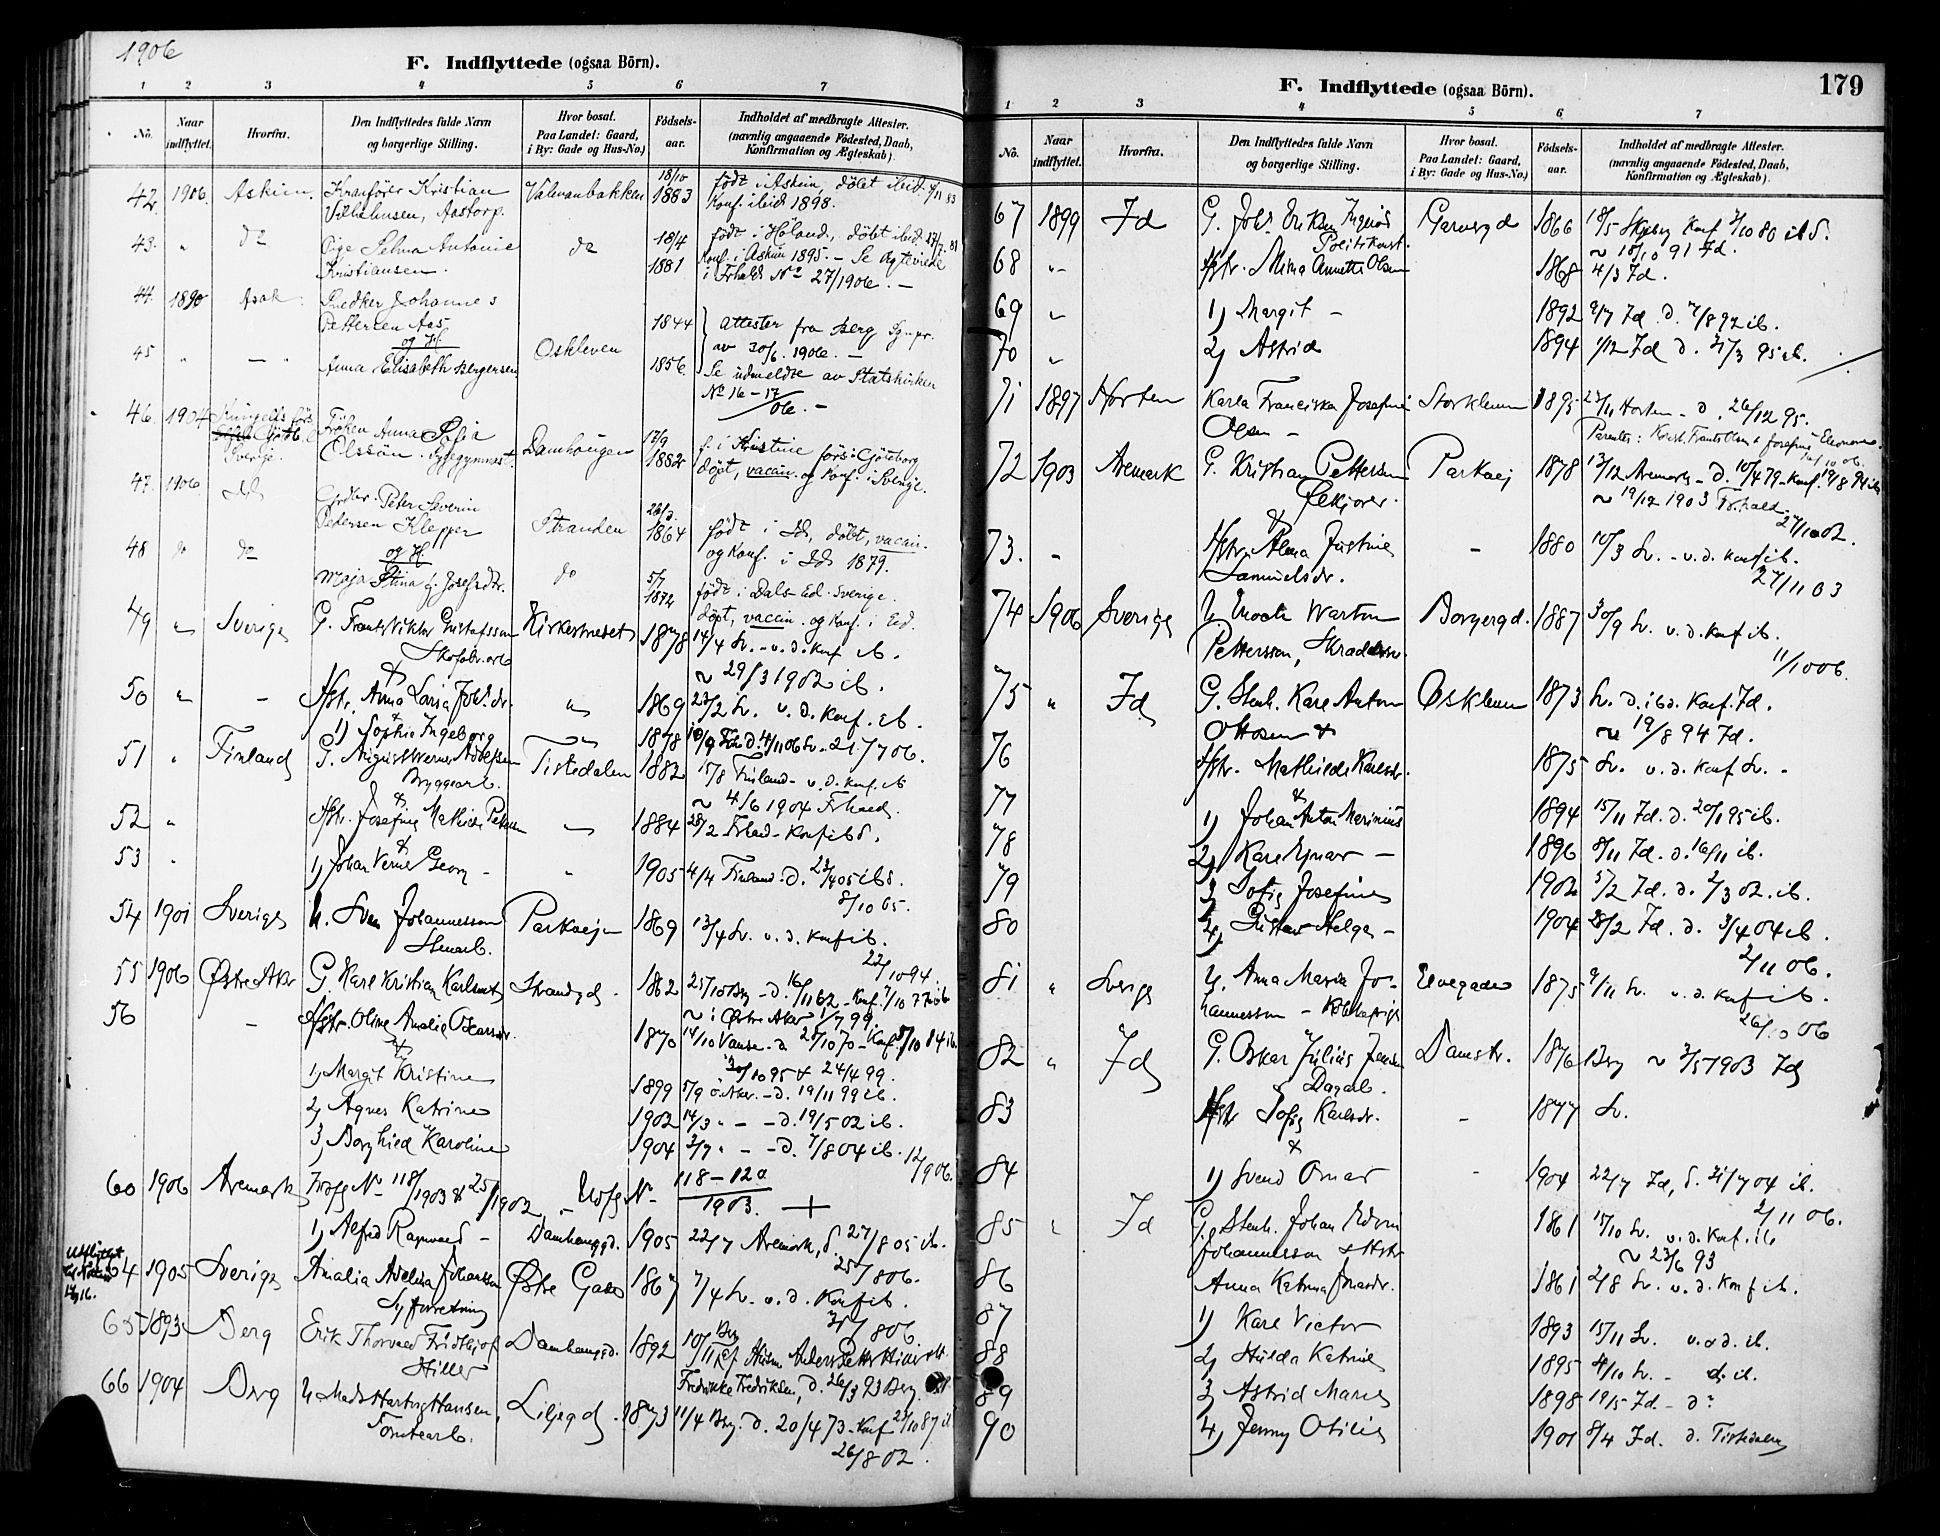 1906
F. Indflyttede (ogsaa Börn).
1 2 3 4 5 6 7
No.
Naar indflyttet.
Hvorfra.
Den Indflyttedes fulde Navn og borgerlige Stilling.
Hvor bosat. Paa Landet: Gaard, i By: Gade og Hus-No.)
Födsels-aar.
Indholdet af medbragte Attester. (navnlig angaaende Födested, Daab, Konfirmation og Ægteskab).
42. 1906. Askim. Kranfører Kristian Valmanbakken 18/10 1883 født i Askim, døbt ibid. 4/11 83
Vilhelmsen, Aastorp. Konf. ibid 1898.
43. " do Pige Selma Antonie do 18/4 1881 født i Høland, døbt ibid.
Kristiansen. Konf. i Askim 1895. – Se Ægteviede
i Frhald No 27/1906. –
44. 1890 Asak. Snedker Johannes
Pettersen Aas 1844 attester fra Berg
og H. Oskleven av 30/6 1906. –
45 " – " Anna Elisabeth Bergersen 1856. Se udmeldte av Statskirken
No 16–17/06. –
46. 1904 Göteb. Sverige. Frøken Anna Sofia
Olsson. Sygegymnast. Damhaugen 17/9 1882 f. i Kristine förs: Göteborg
döpt, vaccin. og Konf. i Sverige.
47. 1906 Id Peter Severin
Pedersen Klepper Stranden 1864 født i Id, døbt, vaccin.
og H. og Konf. i Id 1879.
48 do do Maja Stina f. Josefsdtr. do 5/7 1872 født i Dals-Ed. Sverige.
döpt, vaccin. og Konf. i Ed.
49 " Sverige G. Frants Viktor Gustafsson Kirkestredet 1878 14/4 Sv. – v. d. Konf ib.
Skofabr. arb. ~ 29/3 1902 ib.
&
50 " – Hstr. Anna Lovisa Joh.dr. " 1869 23/2 Sv. v. d. Konf. ib.
1) Sophie Ingeborg
51 " Finland G. August Werner Adolfsen Tistedalen 1882 15/8 Finland – v. d. Konf. ib
Bryggearb. ~ 4/6 1904 Frhald.
&
52 " Hstr. Josefine Mathilde Petersen – 1884 28/2 Frhald – Konf ib
&
53 " 1) Johan Verner Georg – " 1905 4/4 Finland. D.
8/10 05.
54 1901 Sverige U. Sven Johannesson Parkveien 1869 13/4 Sv. v. d. Konf ib.
Stenarb. 22/10 94
55 1906 Østre Aker G. Karl Kristian Karlsen Strandgd. 1862 25/10 Berg – d. 16/11 62 – Konf. 7/10 77 ib
~ i Østre Aker 1/7 99
56 – Hstr. Oline Amalia Oscarsdr. 1870 14/10 Vanse – d. 28/10 70 –
& 24/4 99.
1) Margit Kristine 1899 5/9 Ø. Aker. – d. 19/11 99 ib.
2) Agnes Katrine 1902 14/3 " – – d. 19/5 02 ib.
3) Borghild Karoline 1904 3/7 " – – d. 7/8 04 ib.
12/9 06.
60 1906 Aremark Indfg No 118/1903 & 25/1902 Udfg No – 118–120/1903.
1) Alfred Ragnvald – Damhaugd. 1905 22/7 Aremark, d. 27/8 05 ib.
25/8 06.
64 1905 Sverige Amalia Adelina Johansson Østre Gade 1867 7/4 Sv. v. d. Konf ib.
Syforretning
65 1893 Berg Erik Thorvald Fridthjof Damhaugd. 1892 10/11 Berg Anders
Hiller Fredrikke Fredriksen, d. 26/3 93 Berg.
66 1904 Berg U. Mads Hartvig Hansen, Liljegd. 1873 11/4 Berg. d. 20/4 73 – Konf 23/10 87 ib
Tomtearb. 26/8 02.
179
F. Indflyttede (ogsaa Börn).
1 2 3 4 5 6 7
No.
Naar indflyttet.
Hvorfra.
Den Indflyttedes fulde Navn og borgerlige Stilling.
Hvor bosat. Paa Landet: Gaard, i By: Gade og Hus-No.)
Födsels-aar.
Indholdet af medbragte Attester. (navnlig angaaende Födested, Daab, Konfirmation og Ægteskab).
67 1899 Id G. Joh. Eriksen Ingerød Garvergd 1866 18/5 Skjeberg Konf 3/10 80 ib d.
Politikonst. ~ 18/10 91 Id.
68 " Hstr. Mina Annette Olsen 1868 4/3 Id.
69 " 1) Margit – 1892 9/7 Id. D. 7/8 92 ib.
70 " 2) Astrid 1894 1/12 Id D. 31/3 95 ib.
71 1897 Horten Karla Franciska Josefine Storkleven 1895 23/11 Horten – d. 26/12 95.
Olsen – Parents: Frants Olsen & Josefine Eleonore
72 1903 Aremark G. Kristian Pettersen Parkvej 1878 13/12 Aremark – D. 10/4 79 – Konf.
& ~ 19/12 1903 Frhald.
73. – Hstr. Alma Justine – 1880 10/3 Sv. – v. d. Konf ib.
Samuelsdr. 27/11 03
74 1906 Sverige U. Enock Warton Borgergd. 1887 30/9 Sv. v. d. Konf ib.
Pettersson, Skrædder. 11/10 06.
75 " Id G. Stenh. Karl Anton Oskleven 1873 Sv. D. ibd. Konf. Id.
Ottosen & ~ 19/8 94 Id.
76 Hstr. Mathilde Karlsdr. 1875 Sv. v. d. Konf Sv. –
&
77 1) Johan Anton Marinius 1894 15/11 Id. d. 20/1 95 ib.
78 2) Karl Ejnar – 1896 8/11 Id. d. 16/11 ib.
79 3) Sofie Josefine 1902 5/2 Id. d. 2/3 02. ib.
80 4) Gustav Helge – 1904 28/2 Id. d. 3/4 04 ib.
2/11 06.
81 " Sverige U. Anna Maria Jo- Elvegaden 1875 9/11 Sv. v. d. Konf ib.
hannesson – 26/10 06
82 " Id G. Oskar Julius Jensen Damstr. 1876 Berg ~ 3/5 1903 Id
& Dagarb.
83 Hstr Sofie Karlsdr. – 1877 Sv.
&
84 1) Svend Omar – 1904 22/7 Id, d. 31/7 04 ib.
2/11 06.
85 " Id G. Stenh. Johan Edvin 1861 15/10 Sv. v. d. Konf. ib
Johannesson & Hstr ~ 23/6 93
86 Anna Katrina Jonasdr. 1861 2/8 Sv. v. d. Konf ib.
87 1) Karl Victor 1893 15/11 Sv. v. & d. ib.
88 2) Hulda Katrine 1895 4/10 Sv. – d. ib.
89 3) Astrid Marie 1898 19/5 Id. – d:
90 4) Jenny Otilie 1901 8/4 Id. d. Tistedalen